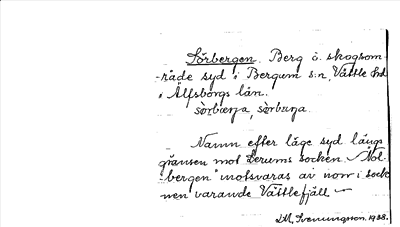 Sörbergen. Berg o. skogsom-
råde syd i Bergum s:n, Vättle hd
i Älfsborgs län.
sörbærja, sörbærja.
Namn efter läge syd längs
gränsen mot Lerums socken. „Nol-
bergen" motsvaras av norr i sock-
nen varande Vättlefjäll
Svenungson. 1938.